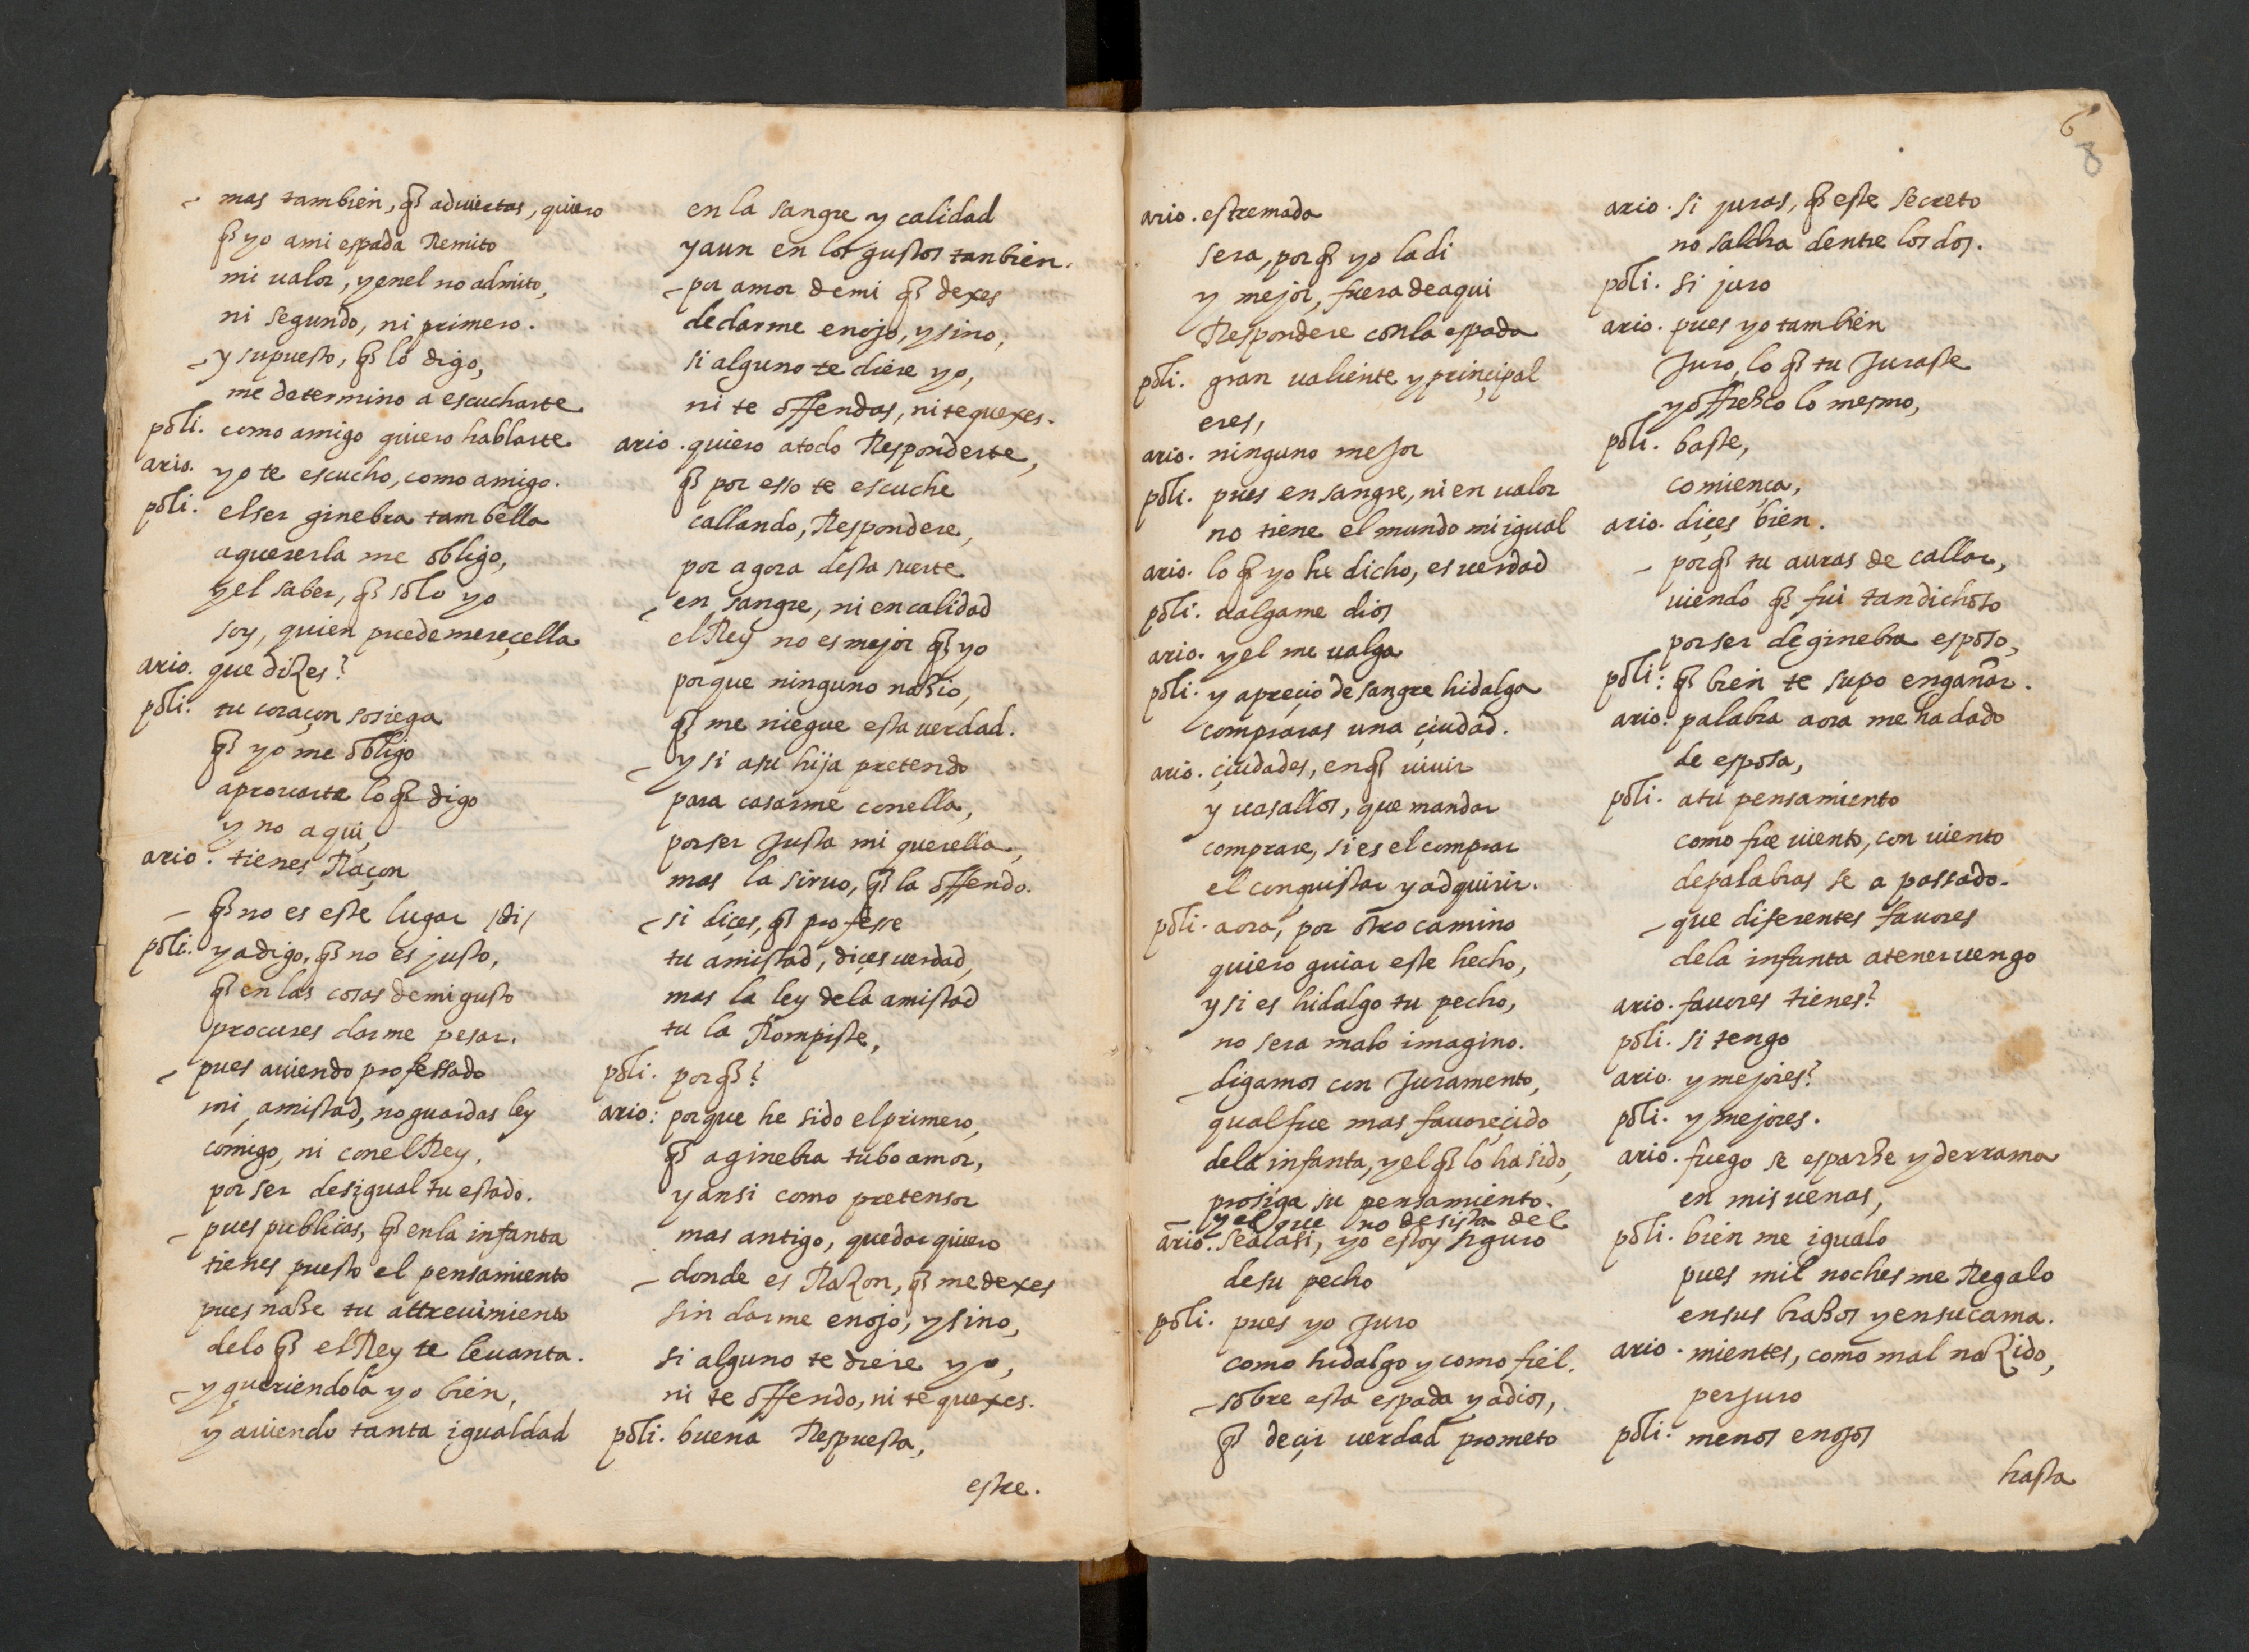 mas tambien, q̃ aduiertas, quiero
q̃ yo ami espada Remito
mi ualor, yenel no admito,
ni segundo, ni primero.
y supuesto, q̃ lo digo,
me determino a escucharte
poli. como amigo quiero hablarte
ario. yo te escucho, como amigo.
poli. elser ginebra tambella
aquererla me obligo,
yel saber, q̃ solo yo
soy, quien puedemereçella
ario. que diZes?
poli. tu coraçon sosiega
q̃ yo me obligo
aprouarte lo q̃ digo
y no aqui,
ario. tienes Raçon
q̃ no es este lugar /di/
poli. yadigo, q̃ no es justo,
q̃ en las cosas demi gusto
procures darme pesar.
pues auiendo professado
mi amistad, noguardas ley
comigo, ni conelRey,
por ser desigual tu estado.
pues publicas, q̃ enla infanta
tienes puesto el pensamiento
pues naze tu attreuimiento
delo q̃ elRey te leuanta.
y queriendola yo bien,
y auiendo tanta igualdad
en la sangre y calidad
yaun en los gustos tanbien.
por amor demi q̃ dexes
dedarme enojo, ysino,
si alguno te diere yo,
ni te offendas, nitequexes.
ario. quiero atodo Responderte,
q̃ por esso te escuche
callando, Respondere,
por agora desta suerte
en sangre, ni encalidad
elRey no es mejor q̃ yo
porque ninguno nazio,
q̃ me niegue esta uerdad.
y si asu hija pretendo
para casarme conella,
porser Justa mi querella,
mas la siruo, q̃ la offendo.
si diçes, q̃ professe
tu amistad, diçes uerdad,
mas la ley dela amistad
tu la Rompiste,
poli. porq̃?
ario: porque he sido elprimero,
q̃ aginebra tubo amor,
y ansi como pretensor
mas antigo, quedar quiero
donde es RaZon, q̃ medexes
sin darme enojo, ysino,
si alguno te diere yo,
ni te offendo, ni te quexes.
poli. buena Respuesta,
estre.
6
8
ario. estremada
sera, porq̃ yo ladi
y mejor, fuera deaqui
Respondere conla espada
poli. gran ualiente yprinçipal
eres,
ario. ninguno meJor
poli. pues ensangre, ni en ualor
no tiene elmundo miigual
ario. lo q̃ yo he dicho, es uerdad
poli. ualgame dios
ario. yel me ualga
poli. y apreçio desangre hidalga
compraras una çiudad.
ario. çiudades, enq̃ uiuir
y uasallos, que mandar
comprare, sies elcomprar
el conquistar yadquirir.
poli. aora, por otro camino
quiero guiar este hecho,
ysi es hidalgo tu pecho,
no sera malo imagino.
digamos con Juramento,
qualfue mas fauoreçido
dela infanta, yelq̃ lo ha sido,
prosiga su pensamiento.
yel que no desista del
ario. sealasi, yo estoy siguro
desu pecho
poli. pues yo Juro
como hidalgo y como fiel.
sobre esta espada yadios,
q̃ deçir uerdad prometo
ario. si juras, q̃ este secreto
no saldra dentre los dos.
poli. si juro
ario. pues yo tambien
Juro, lo q̃ tu Juraste
yoffrezco lo mesmo,
poli. baste,
comiença,
ario. diçes bien.
porq̃ tu auras de callar,
uiendo q̃ fui tandichoso
porser deginebra esposo,
poli: q̃ bien te supo engañar.
ario: palabra aora me ha dado
de esposa,
poli. atu pensamiento
como fue uiento, con uiento
depalabras se a passado.
que diferentes fauores
dela infanta atener uengo
ario. fauores tienes?
poli. si tengo
ario. y mejores?
poli. y mejores.
ario. fuego se esparze yderrama
en mis uenas,
poli. bien me igualo
pues mil noches me Regalo
ensus brazos yensucama.
ario. mientes, como mal naZido,
perJuro
poli: menos enojos
hasta